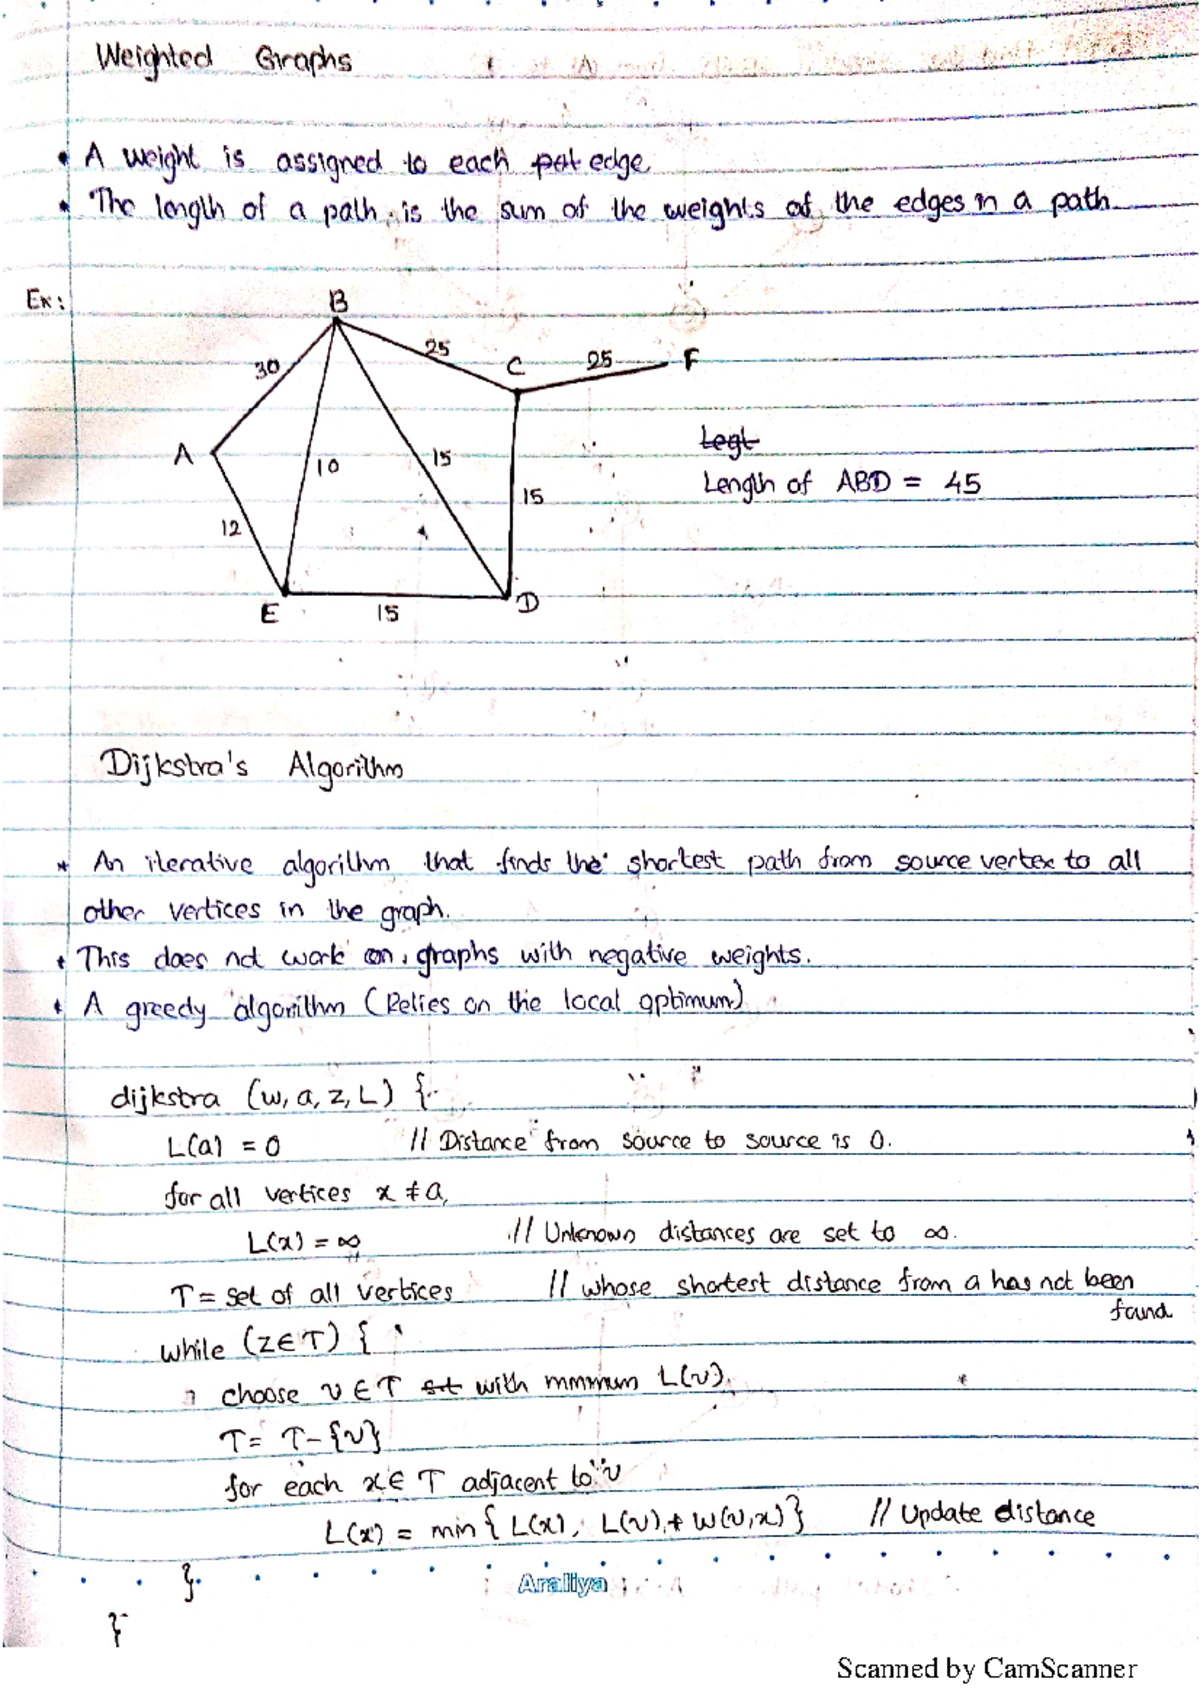 Weighted Graphs
• A weight is assigned to each pat edge
• The length of a path is the sum of the weights of the edges in a path
Ex:
B
30
25
C
25
F
A
10
15
15
Legt
Length of ABD = 45
12
E
15
D
Dijkstra's Algorithm
* An iterative algorithm that finds the shortest path from source vertex to all
other vertices in the graph.
* This does not work on graphs with negative weights.
* A greedy algorithm (Relies on the local optimum)
dijkstra (w, a, z, L) {
L(a) = 0 // Distance from source to source is 0.
for all vertices x ≠ a,
L(x) = ∞ // Unknown distances are set to ∞.
T = set of all vertices // whose shortest distance from a has not been
found
while (z ∈ T) {
choose v ∈ T set with minimum L(v).
T = T - {v}
for each x ∈ T adjacent to v
L(x) = min { L(x), L(v) + w(v,x) } // Update distance
}
Araliya
}
Scanned by CamScanner